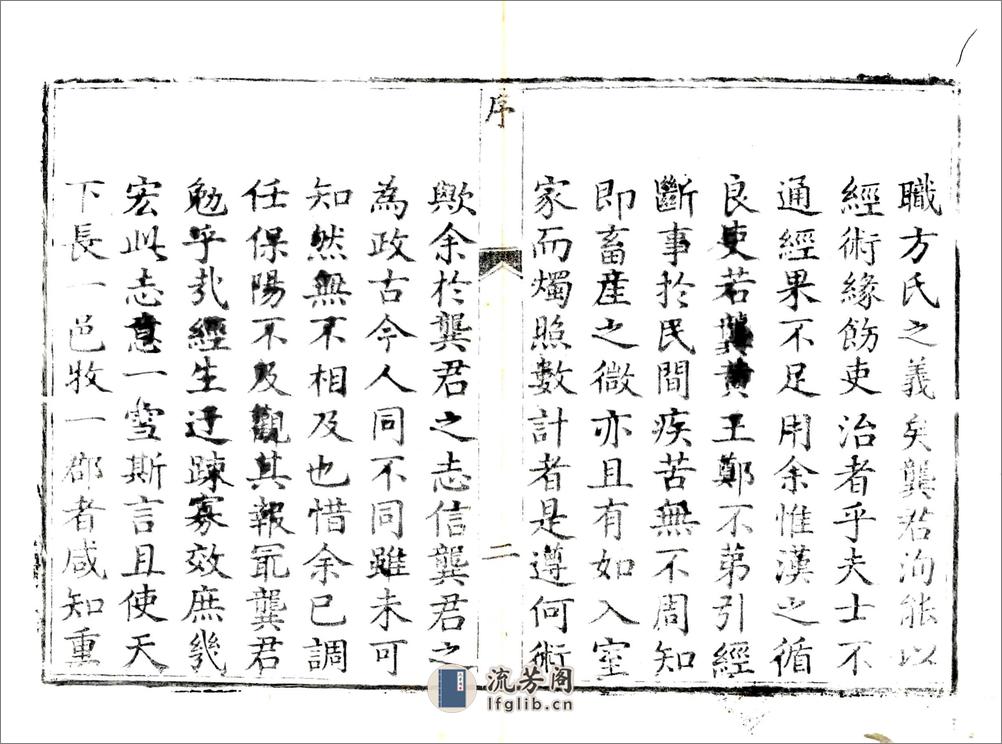 職方氏之義矣龔君洵能以
經術緣飭吏治者乎夫士不
通經果不足用余惟漢之循
良吏若龔黃王鄭不第引經
斷事於民間疾苦無不周知
即畜產之微亦且有如入室
家而燭照數計者是遵何術
序
二
歟余於龔君之志信龔君之
為政古今人同不同雖未可
知然無不相及也惜余已調
任保陽不及觀其報最龔君
勉乎哉經生迂疎寡效庶幾
宏此志意一雪斯言且使天
下長一邑牧一郡者咸知重
流芳阁
lfglib.cn